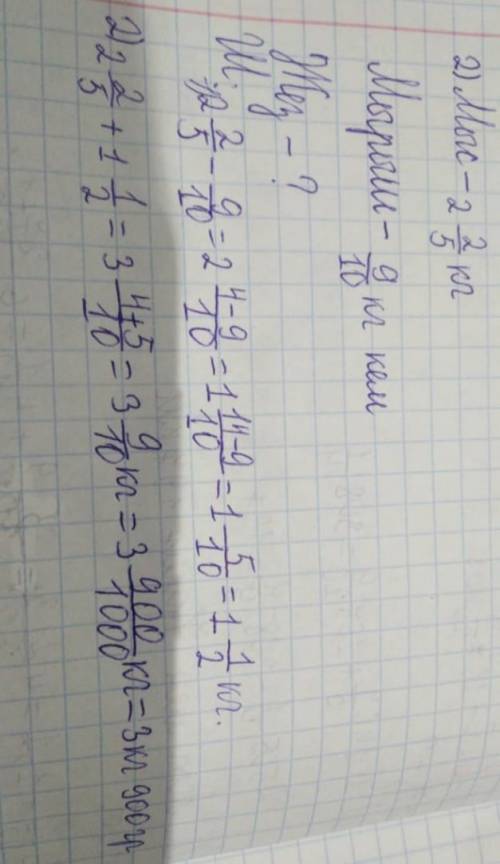 2) Мыс - 2 2/5 кг
Мырыш - 9/10 кг кем
Жез - ?
Ш. 1) 2 2/5 - 9/10 = 2 4-9/10 = 1 14-9/10 = 1 5/10 = 1 1/2 кг.
2) 2 2/5 + 1 1/2 = 3 4+5/10 = 3 9/10 кг = 3 900/1000 кг = 3 кг 900 гр